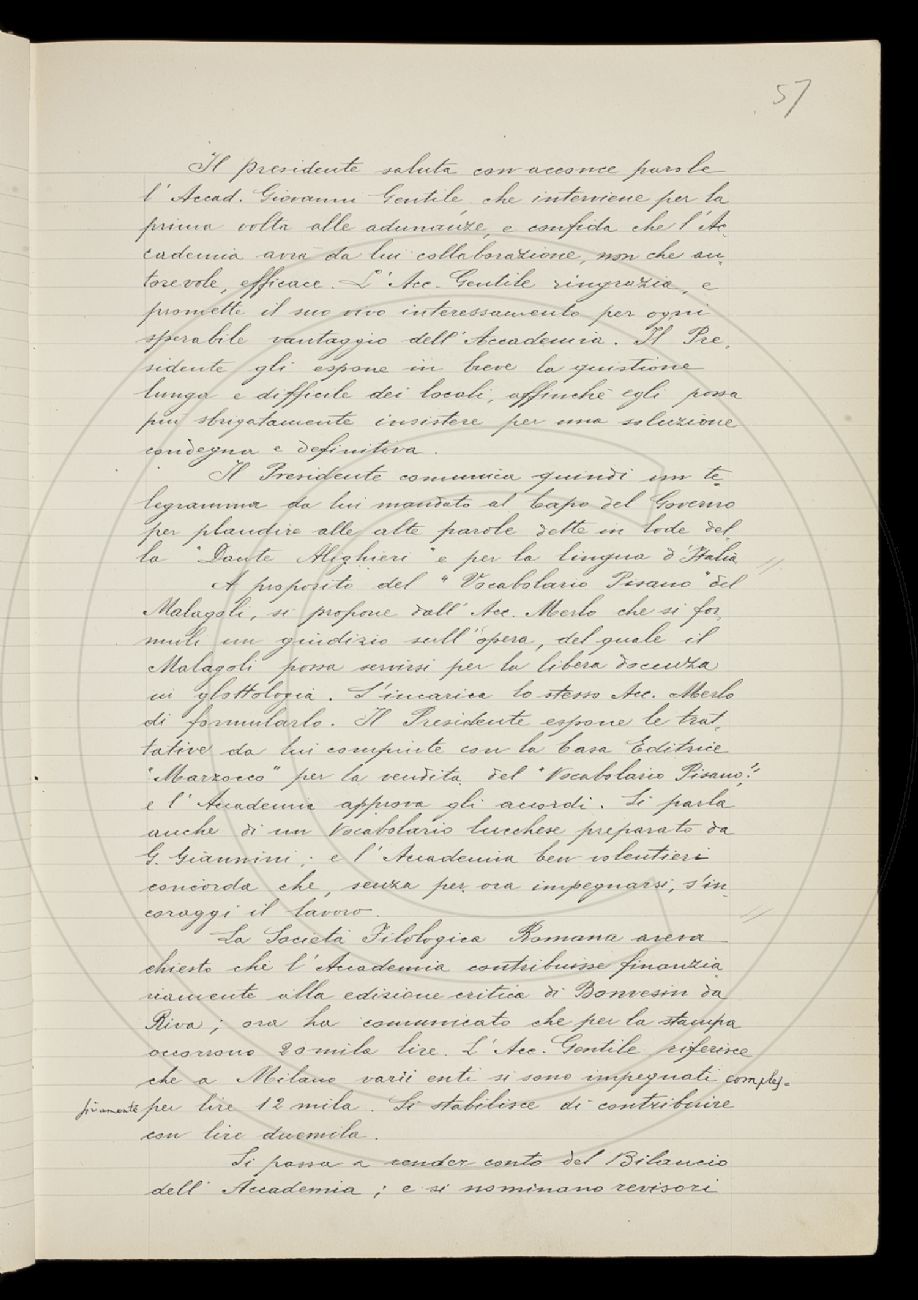 57
Il presidente saluta con acconce parole
l'Accad. Giovanni Gentile che interviene per la
prima volta alle adunanze, e confida che l'Ac-
cademia avrà da lui collaborazione, non che au-
torevole, efficace. L'Acc. Gentile ringrazia, e
promette il suo vivo interessamento per ogni
sperabile vantaggio dell'Accademia. Il Pre-
sidente gli espone in breve la quistione
lunga e difficile dei locali, affinché egli possa
più sbrigatamente insistere per una soluzione
condegna e definitiva.
Il Presidente comunica quindi un te-
legramma da lui mandato al Capo del Governo
per plaudire alle alte parole dette in lode del-
la "Dante Alighieri" e per la lingua d'Italia
A proposito del "Vocabolario Pisano" del
Malagoli, si propone dall'Acc. Merlo che si for-
muli un giudizio sull'opera, del quale il
Malagoli possa servirsi per la libera docenza
in glottologia. S'incarica lo stesso Acc. Merlo
di formularlo. Il Presidente espone le trat-
tative da lui compiute con la Casa Editrice
"Marzocco" per la vendita del "Vocabolario Pisano";
e l'Accademia approva gli accordi. Si parla
anche di un Vocabolario lucchese preparato da
G. Giannini; e l'Accademia ben volentieri
concorda che, senza per ora impegnarsi, s'in-
coraggi il lavoro.
La Società Filologica Romana aveva
chiesto che l'Accademia contribuisse finanzia
riamente alla edizione critica di Bonvesin da
Riva; ora ha comunicato che per la stampa
occorrono 20 mila lire. L'Acc. Gentile riferisce
che a Milano varii enti si sono impegnati comples-
sivamente per lire 12 mila. Si stabilisce di contribuire
con lire duemila.
Si passa a render conto del Bilancio
dell'Accademia; e si nominano revisori